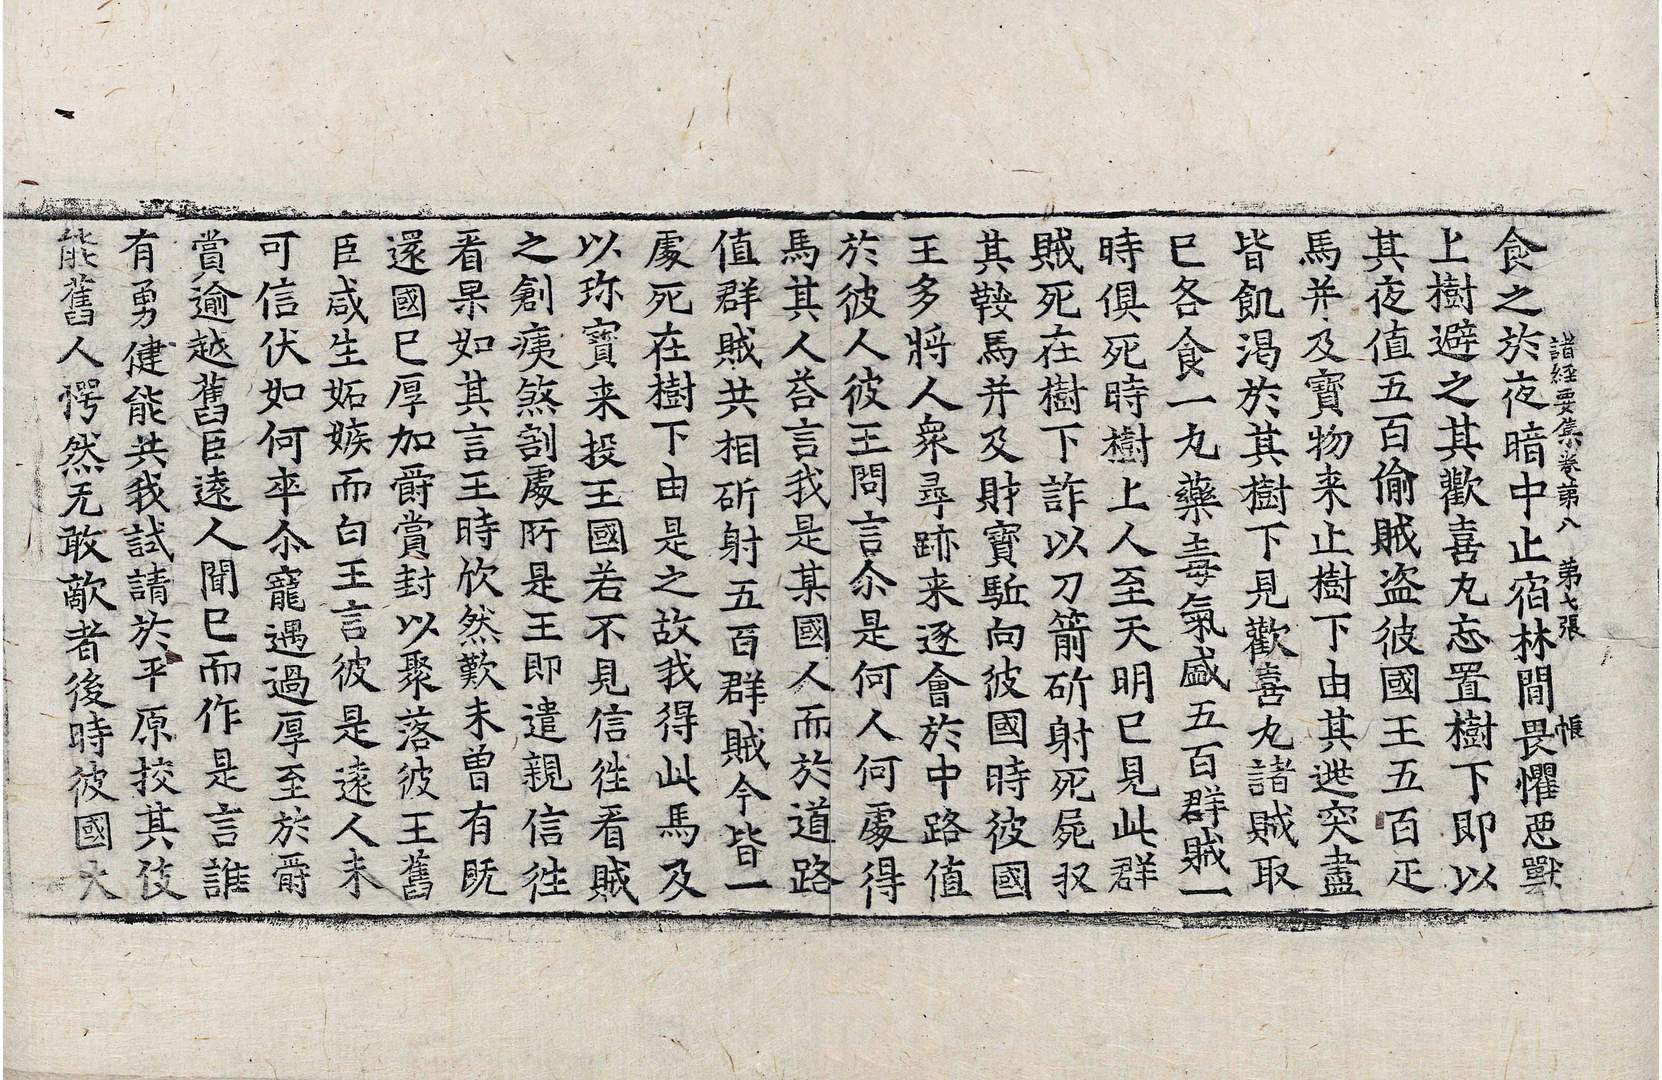 諸經要集卷第八 第七張 帳
食之於夜暗中止宿林間畏懼惡獸
上樹避之其歡喜丸忘置樹下即以
其夜值五百偷賊盜彼國王五百疋
馬并及寶物来止樹下由其迯突盡
皆飢渴於其樹下見歡喜丸諸賊取
已各食一丸藥毒氣盛五百群賊一
時俱死時樹上人至天明已見此群
賊死在樹下詐以刀箭斫射死屍収
其鞍馬并及財寶駈向彼國時彼國
王多將人衆尋跡来逐會於中路值
於彼王彼王問言尒是何人何處得
馬其人荅言我是某國人而於道路
值群賊共相斫射五百群賊今皆一
處死在樹下由是之故我得此馬及
以珎寶来投王國若不見信徃看賊
之創痍煞割處所是王即遣親信徃
看果如其言王時欣然歎未曾有既
還國已厚加爵賞封以聚落彼王舊
臣咸生妬嫉而白王言彼是遠人未
可信伏如何卒尒寵遇過厚至於爵
賞逾越舊臣遠人聞已而作是言誰
有勇健能共我試請於平原挍其伎
能舊人愕然无敢敵者後時彼國大